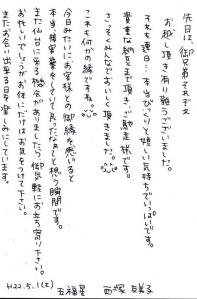 先日は、御兄弟それぞれ
お越し頂き有り難うございました。
それも連日…本当びっくりと嬉しい気持ちでいっぱいです。
貴重な納豆まで頂き、ご馳走様です。
さっそくみんなでおいしく頂きました。
これも何かの縁ですね。
今日みたいにお客様との御縁を感じると
本当接客業をしていて良かったなぁと想う瞬間です。
また仙台に来る機会がありましたら御気軽にお立ち寄り下さい。
お忙しいでしょうがお体にだけはお気をつけて下さい。
またお会い出来る日を楽しみにしています。
H22.5.1(土)
五福星
西塚